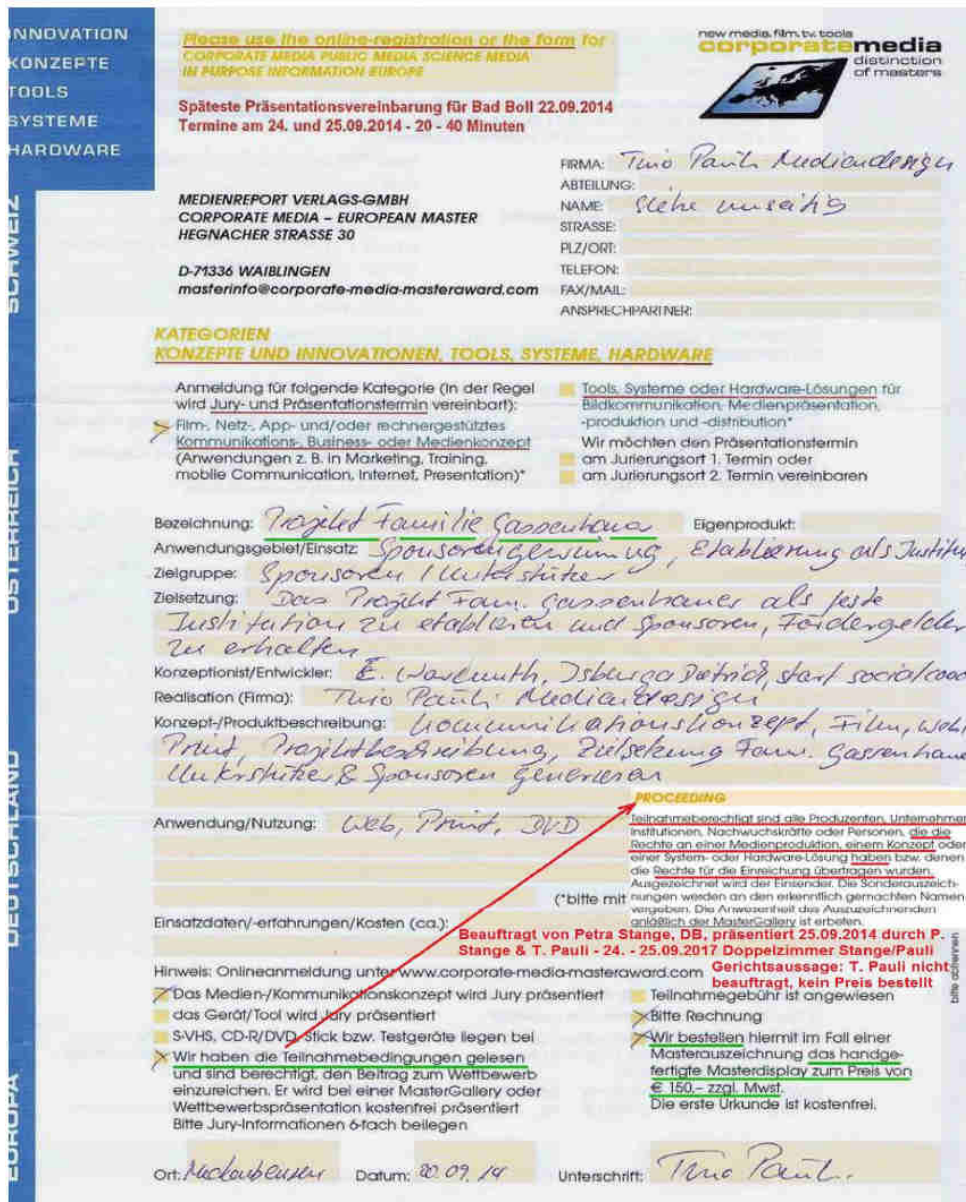 INNOVATION
KONZEPTE
TOOLS
SYSTEME
HARDWARE
SCHWEIZ
ÖSTERREICH
DEUTSCHLAND
EUROPA
Please use the online-registration or the form for
CORPORATE MEDIA PUBLIC MEDIA SCIENCE MEDIA
IN PURPOSE INFORMATION EUROPE
new media. film. tv. tools
corporatemedia
distinction
of masters
Späteste Präsentationsvereinbarung für Bad Boll 22.09.2014
Termine am 24. und 25.09.2014 - 20 - 40 Minuten
MEDIENREPORT VERLAGS-GMBH
CORPORATE MEDIA – EUROPEAN MASTER
HEGNACHER STRASSE 30
D-71336 WAIBLINGEN
masterinfo@corporate-media-masteraward.com
FIRMA: Tino Pauli Mediendesign
ABTEILUNG:
NAME: siehe umseitig
STRASSE:
PLZ/ORT:
TELEFON:
FAX/MAIL:
ANSPRECHPARTNER:
KATEGORIEN
KONZEPTE UND INNOVATIONEN, TOOLS, SYSTEME, HARDWARE
Anmeldung für folgende Kategorie (In der Regel
wird Jury- und Präsentationstermin vereinbart):
Film-, Netz-, App- und/oder rechnergestütztes
Kommunikations-, Business- oder Medienkonzept
(Anwendungen z. B. in Marketing, Training,
mobile Communication, Internet, Presentation)*
Tools, Systeme oder Hardware-Lösungen für
Bildkommunikation, Medienpräsentation,
-produktion und -distribution*
Wir möchten den Präsentationstermin
am Jurierungsort 1. Termin oder
am Jurierungsort 2. Termin vereinbaren
Bezeichnung: Projekt Familie Gassenhaua Eigenprodukt:
Anwendungsgebiet/Einsatz: Sponsorengewinnung, Etablierung als Institu
Zielgruppe: Sponsoren / Unterstützer
Zielsetzung: Das Projekt Fam. Gassenhauer als feste
Institution zu etablieren und Sponsoren, Fördergelder
zu erhalten
Konzeptionist/Entwickler: E. Isburga Dietrich, start social
Realisation (Firma): Tino Pauli Mediendesign
Konzept-/Produktbeschreibung: Kommunikationskonzept, Film, Web,
Print, Projektbeschreibung, Zielsetzung Fam. Gassenhaue
Unterstützer & Sponsoren generieren
Anwendung/Nutzung: Web, Print, DVD
PROCEEDING
Teilnahmeberechtigt sind alle Produzenten, Unternehmen
Institutionen, Nachwuchskräfte oder Personen, die die
Rechte an einer Medienproduktion, einem Konzept oder
einer System- oder Hardware-Lösung haben bzw. denen
die Rechte für die Einreichung übertragen wurden.
Ausgezeichnet wird der Einsender. Die Sonderauszeich-
(*bitte mit nungen werden an den erkenntlich gemachten Namen
vergeben. Die Anwesenheit des Auszuzeichnenden
anläßlich der MasterGallery ist erbeten.
Einsatzdaten/-erfahrungen/Kosten (ca.):
Beauftragt von Petra Stange, DB, präsentiert 25.09.2014 durch P.
Stange & T. Pauli - 24. - 25.09.2017 Doppelzimmer Stange/Pauli
Gerichtsaussage: T. Pauli nicht
beauftragt, kein Preis bestellt
bitte abtrennen
Hinweis: Onlineanmeldung unter www.corporate-media-masteraward.com
Das Medien-/Kommunikationskonzept wird Jury präsentiert
das Gerät/Tool wird Jury präsentiert
S-VHS, CD-R/DVD, Stick bzw. Testgeräte liegen bei
Wir haben die Teilnahmebedingungen gelesen
und sind berechtigt, den Beitrag zum Wettbewerb
einzureichen. Er wird bei einer MasterGallery oder
Wettbewerbspräsentation kostenfrei präsentiert
Bitte Jury-Informationen 6-fach beilegen
Teilnahmegebühr ist angewiesen
Bitte Rechnung
Wir bestellen hiermit im Fall einer
Masterauszeichnung das handge-
fertigte Masterdisplay zum Preis von
€ 150,– zzgl. Mwst.
Die erste Urkunde ist kostenfrei.
Ort: Datum: 20.09.14 Unterschrift: Tino Pauli